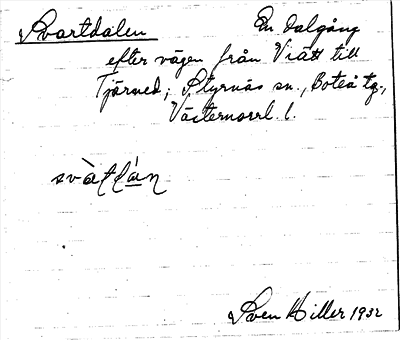 Svartdalen En dalgång
efter vägen från Viätt till
Tjärned, Styrnäs sn., Boteå tg.,
Västernorrl. l.
Sven Hiller 1932